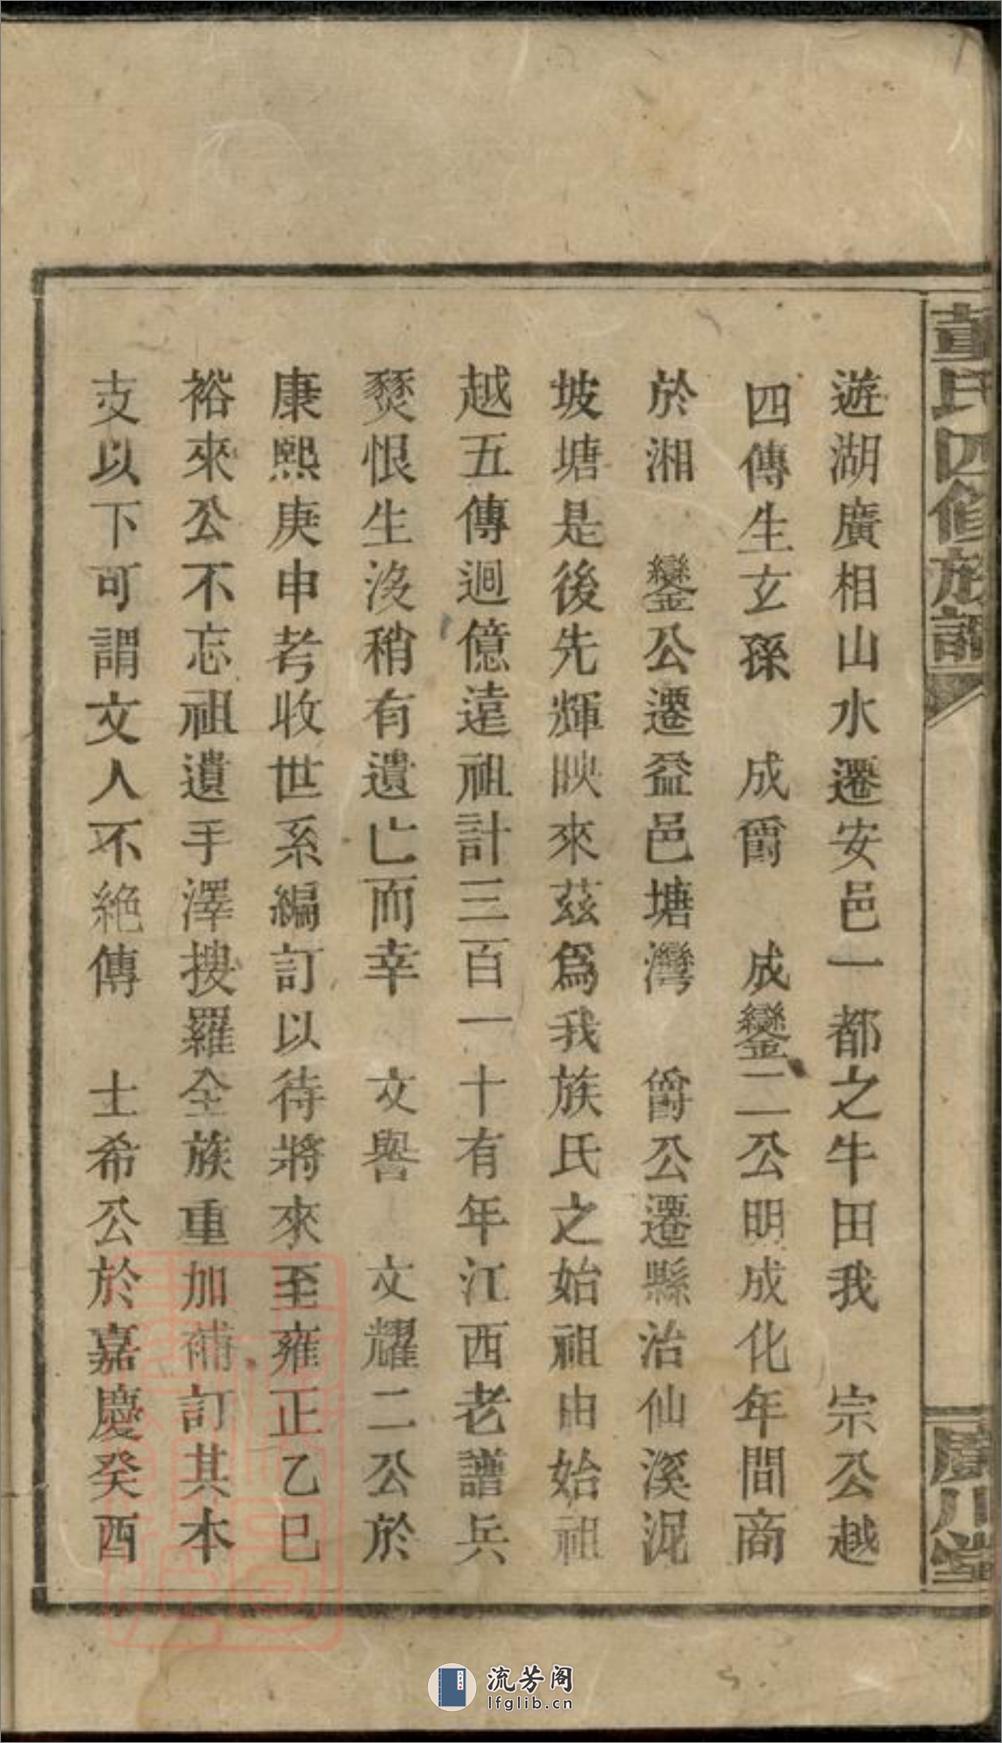 董氏四修族譜
廣川堂
遊湖廣相山水遷安邑一都之牛田我　宗公越
四傳生玄孫　成爵　成鑾二公明成化年間商
於湘　鑾公遷益邑塘灣　爵公遷縣治仙溪泥
坡塘是後先輝映來茲爲我族氏之始祖由始祖
越五傳迴億遠祖計三百一十有年江西老譜兵
燹恨生沒稍有遺亡而幸　文譽　文耀二公於
康熙庚申考收世系編訂以待將來至雍正乙巳
裕來公不忘祖遺手澤搜羅全族重加補訂其本
支以下可謂文人不絶傳　士希公於嘉慶癸酉
流芳阁
lfglib.cn